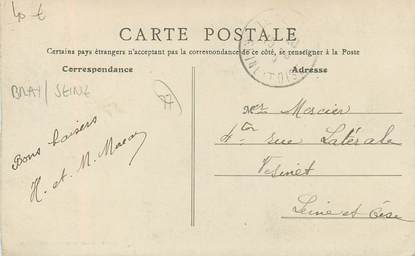 40 €
CARTE POSTALE
Certains pays étrangers n'acceptant pas la correspondance de ce côté, se renseigner à la Poste
Correspondance
Adresse
BRAY/SEINE
Bons baisers
H. et M.
Mercier
rue Latérale
Vésinet
Seine et Oise